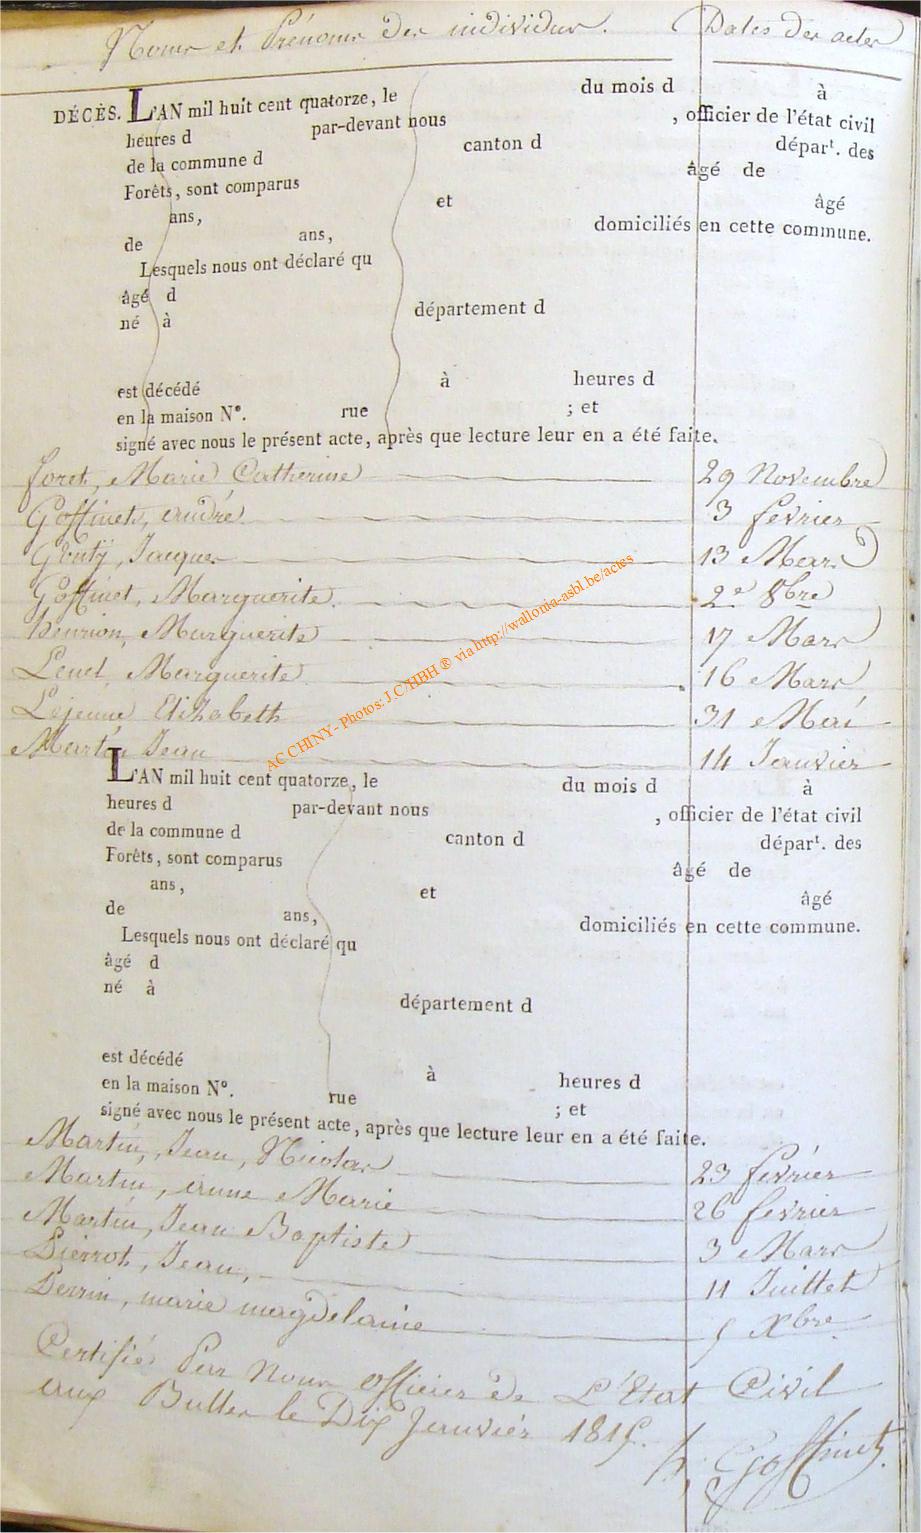 Noms et Prénoms des individus. Dates des actes
DÉCÈS. L'AN mil huit cent quatorze, le du mois d à
heures d par-devant nous , officier de l'état civil
de la commune d canton d départ. des
Forêts, sont comparus âgé de
ans, et âgé
de ans, domiciliés en cette commune.
Lesquels nous ont déclaré qu
âgé d
né à département d
est décédé à heures d
en la maison N°. rue ; et
signé avec nous le présent acte, après que lecture leur en a été faite.
foret, Marie Catherine 29 Novembre
Goffinet, andré 3 fevrier
Jacques 13 Mars
Goffinet, Marguerite. 2e 8bre
henrion, Marguerite 17 Mars
Marguerite 16 Mars
Lejeune Elizabeth 31 Mai
Martin Jean 14 Janvier
AC CHINY - Photos: J.C/HBH ® via http://wallonia-asbl.be/actes
L'AN mil huit cent quatorze, le du mois d à
heures d par-devant nous , officier de l'état civil
de la commune d canton d départ. des
Forêts, sont comparus âgé de
ans, et âgé
de ans, domiciliés en cette commune.
Lesquels nous ont déclaré qu
âgé d
né à département d
est décédé à heures d
en la maison N°. rue ; et
signé avec nous le présent acte, après que lecture leur en a été faite.
Martin, Jean, Nicolas 23 fevrier
Martin, anne Marie 26 fevrier
Martin, Jean Baptiste 3 Mars
Pierrot, Jean, 11 Juillet
Perrin, marie magdelaine 5 Xbre
Certifié Par Nous officier de L'Etat Civil
aux Bulles le Dix Janvier 1815.
Goffinet